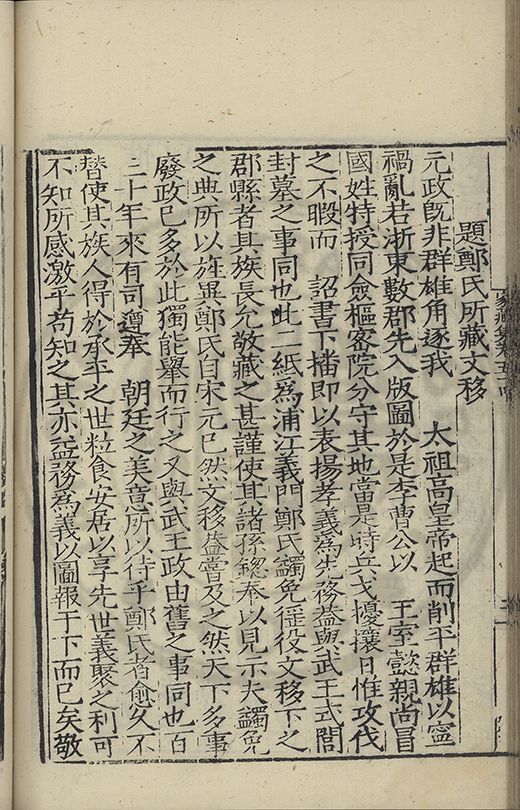 題鄭氏所藏文移
元政既非群雄角逐我 太祖高皇帝起而削平群雄以寧
禍亂若浙東數郡先入版圖於是李曹公以 王室懿親尚冒
國姓特授同僉樞密院分守其地當是時兵戈擾攘日惟攻伐
之不暇而 詔書下播即以表揚孝義為先務葢與武王式閭
封墓之事同也此二紙為浦江義門鄭氏蠲免徭役文移下之
郡縣者其族長允敬藏之甚謹使其諸孫鍃奉以見示夫蠲免
之典所以旌異鄭氏自宋元已然文移葢嘗及之然天下多事
廢政已多於此獨能舉而行之又與武王政由舊之事同也百
三十年來有司遵奉 朝廷之美意所以待乎鄭氏者愈久不
替使其族人得於承平之世粒食安居以享先世義聚之利可
不知所感激乎苟知之其亦益務為義以圖報于下而已矣敬